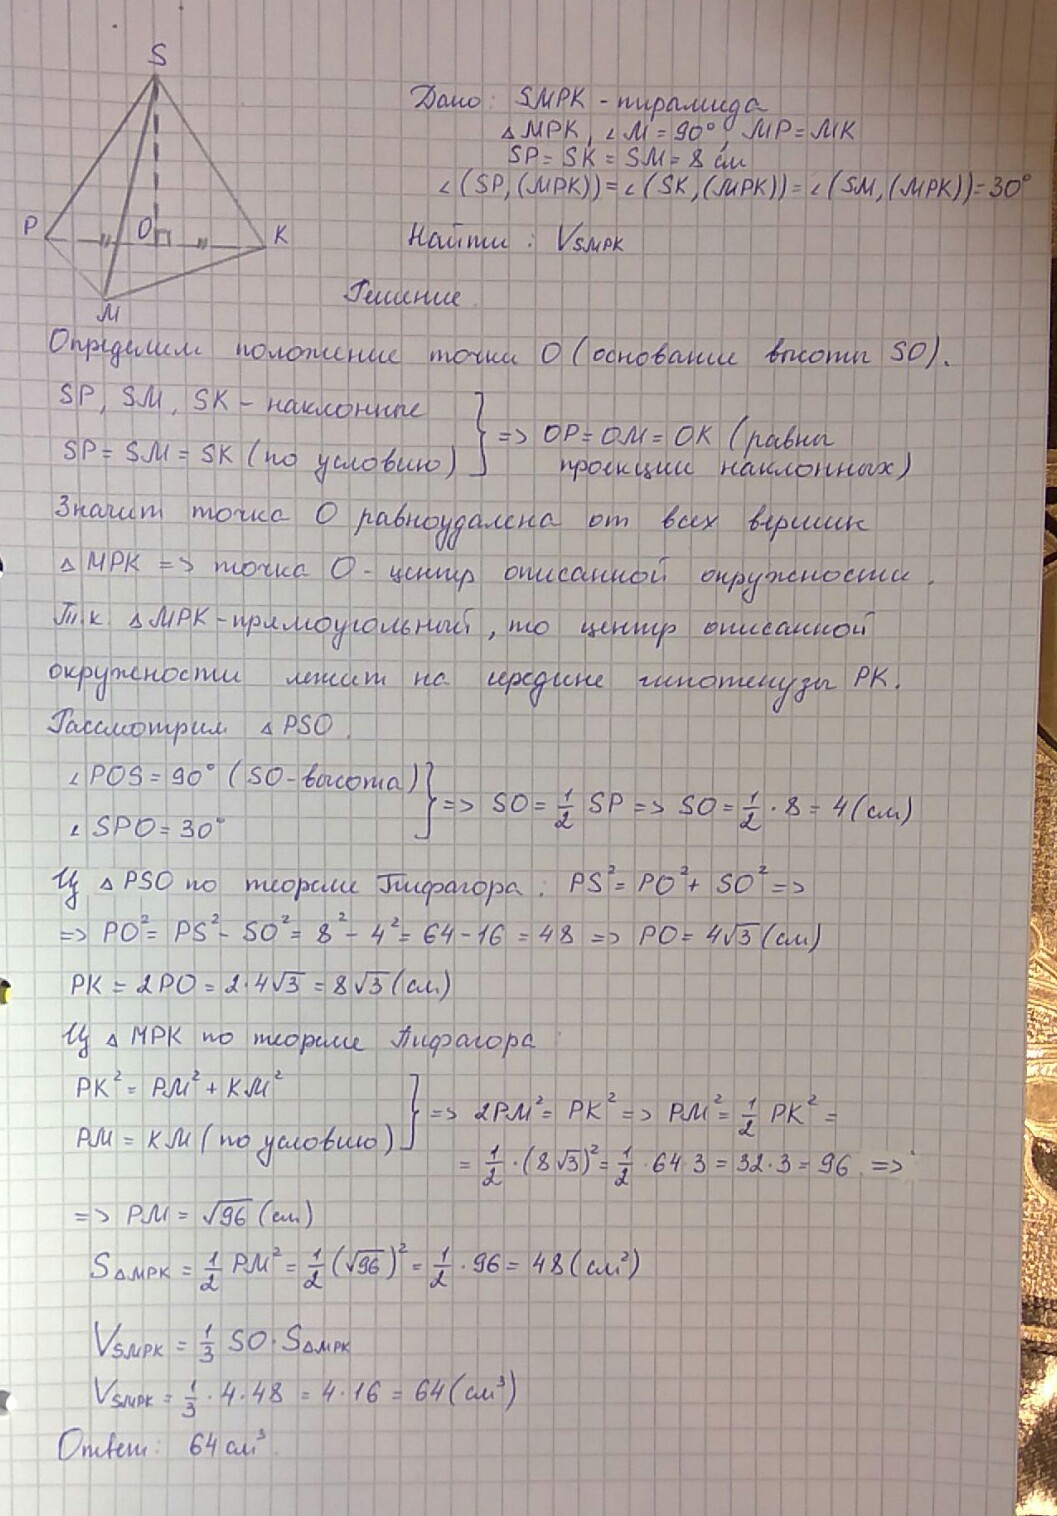 S
P
O
K
M
Дано: SMPK - пирамида
△MPK, ∠M = 90°, MP = MK
SP = SK = SM = 8 см
∠(SP,(MPK)) = ∠(SK,(MPK)) = ∠(SM,(MPK)) = 30°
Найти: V SMPK
Решение
Определим положение точки O (основание высоты SO).
SP, SM, SK - наклонные
SP = SM = SK (по условию) } => OP = OM = OK (равны
проекции наклонных)
Значит точка O равноудалена от всех вершин
△MPK => точка O - центр описанной окружности.
Т.к. △MPK - прямоугольный, то центр описанной
окружности лежит на середине гипотенузы PK.
Рассмотрим △PSO.
∠POS = 90° (SO - высота)
∠SPO = 30° } => SO = 1/2 SP => SO = 1/2 · 8 = 4 (см)
Из △PSO по теореме Пифагора: PS² = PO² + SO² =>
=> PO² = PS² - SO² = 8² - 4² = 64 - 16 = 48 => PO = 4√3 (см)
PK = 2PO = 2·4√3 = 8√3 (см)
Из △MPK по теореме Пифагора
PK² = PM² + KM²
PM = KM (по условию) } => 2PM² = PK² => PM² = 1/2 PK² =
= 1/2 · (8√3)² = 1/2 · 64·3 = 32·3 = 96 =>
=> PM = √96 (см)
S△MPK = 1/2 PM² = 1/2 (√96)² = 1/2 · 96 = 48 (см²)
V SMPK = 1/3 SO · S△MPK
V SMPK = 1/3 · 4 · 48 = 4 · 16 = 64 (см³)
Ответ: 64 см³.